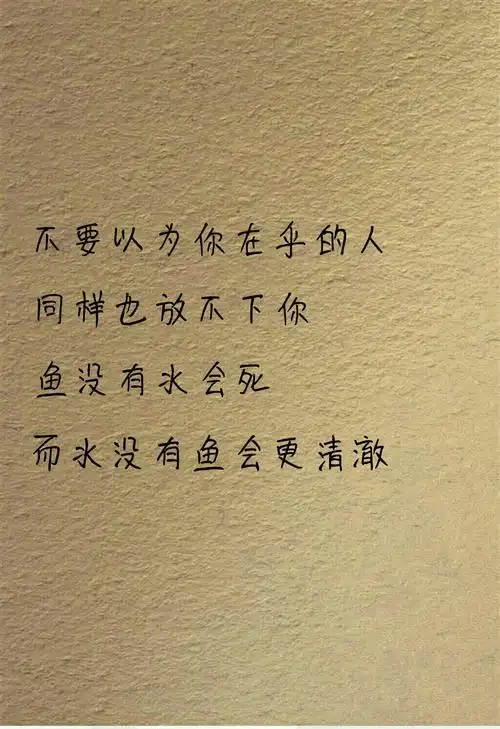 不要以为你在乎的人
同样也放不下你
鱼没有水会死
而水没有鱼会更清澈